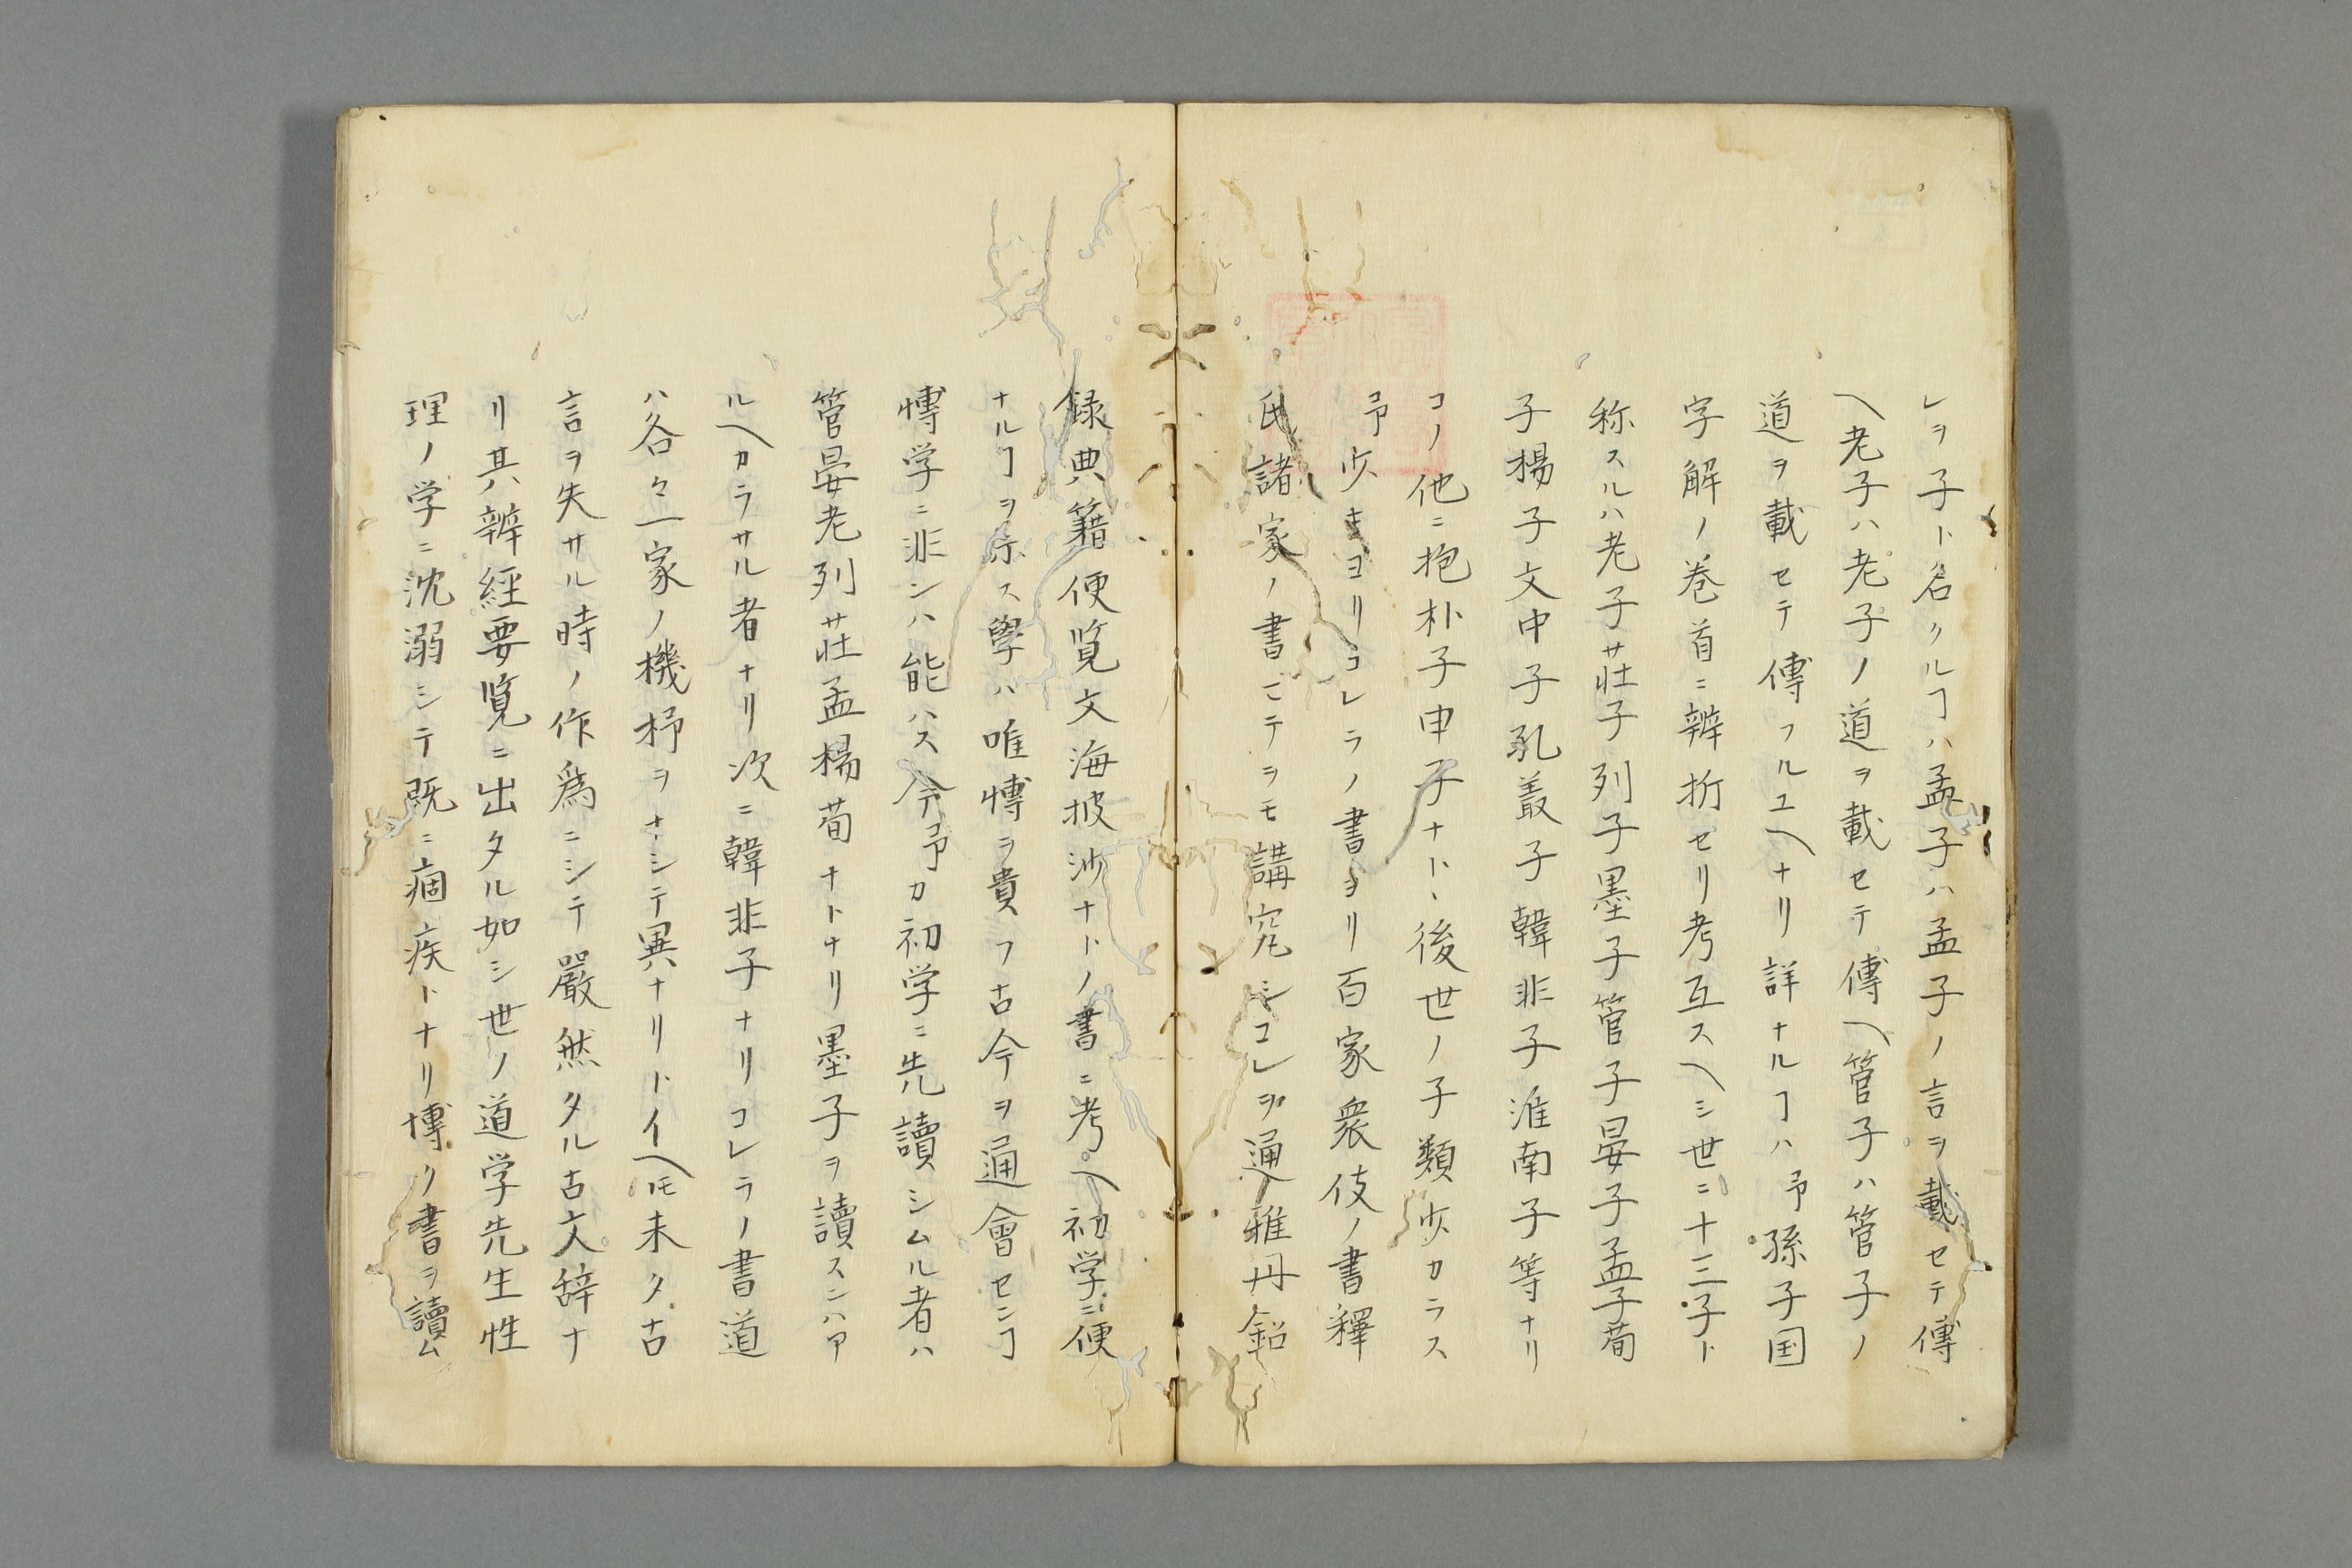 レヲ子ト名クルヿハ孟子ハ孟子ノ言ヲ載セテ傳
ヘ老子ハ老子ノ道ヲ載セテ傳ヘ管子ハ管子ノ
道ヲ載セテ傳フルユヘナリ詳ナルヿハ予孫子国
字解ノ巻首ニ辨折セリ考互スヘシ世ニ十三子ト
称スルハ老子荘子列子墨子管子晏子孟子荀
子楊子文中子孔叢子韓非子淮南子等ナリ
コノ他ニ抱朴子申子ナト後世ノ子類少カラス
予少キヨリコレラノ書ヨリ百家衆伎ノ書釋
氏諸家ノ書ニテヲモ講究シコレヲ通雅丹鉛
録典籍便覧文海披沙ナトノ書ニ考ヘ初学ニ便
ナルヿヲ示ス學ハ唯愽ヲ貴フ古今ヲ通會センヿ
愽学ニ非ンハ能ハス今予カ初学ニ先讀シムル者ハ
管晏老列荘孟楊荀ナトナリ墨子ヲ讀スンハア
ルヘカラサル者ナリ次ニ韓非子ナリコレラノ書道
ハ各々一家ノ機杼ヲナシテ異ナリトイヘ𪜈未タ古
言ヲ失サル時ノ作爲ニシテ嚴然タル古文辞ナ
リ其辨經要覧ニ出タル如シ世ノ道学先生性
理ノ学ニ沈溺シテ既ニ痼疾トナリ博ク書ヲ讀ム